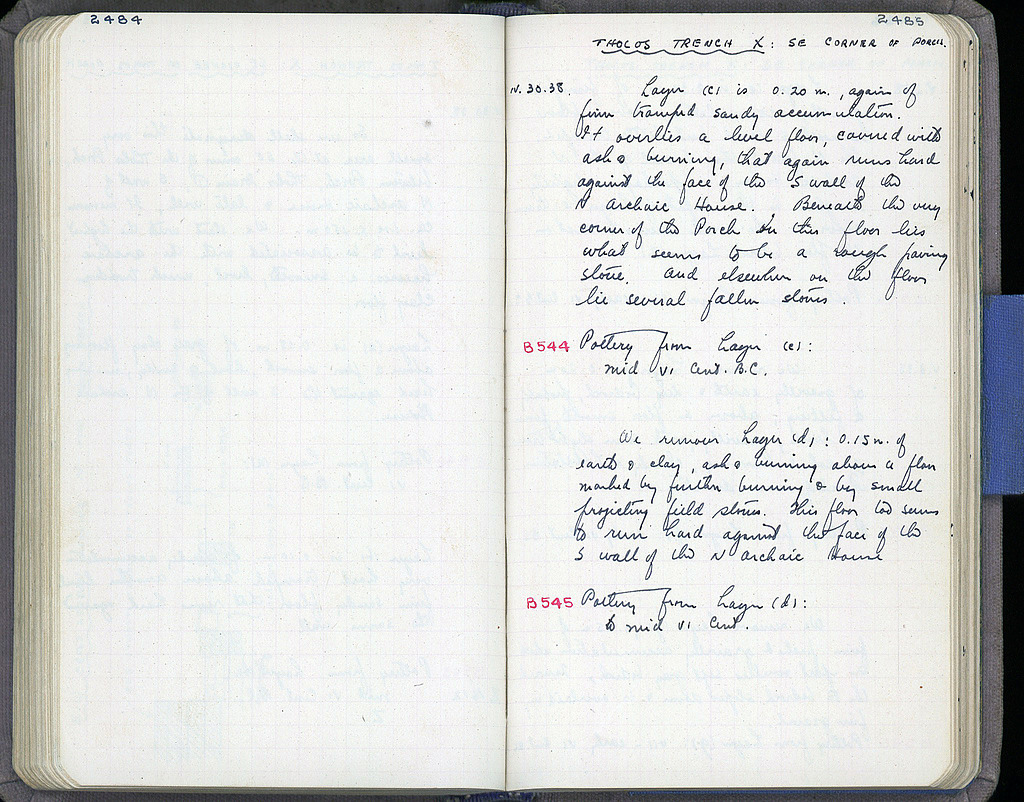 2484
2485
THOLOS TRENCH X: SE CORNER OF PORCH.
IV.30.38.
Layer (c) is 0.20 m., again of
firm tramped sandy accumulation.
It overlies a level floor, covered with
ash & burning, that again runs hard
against the face of the S wall of the
N Archaic House. Beneath the very
corner of the Porch in this floor lies
what seems to be a rough paving
stone. and elsewhere on the floor
lie several fallen stones.
B544 Pottery from Layer (c):
mid VI Cent. B.C.
We remove Layer (d): 0.15 m. of
earth & clay, ash & burning above a floor
marked by further burning & by small
projecting field stones. This floor too seems
to run hard against the face of the
S wall of the N Archaic House
B545 Pottery from Layer (d):
to mid VI Cent.